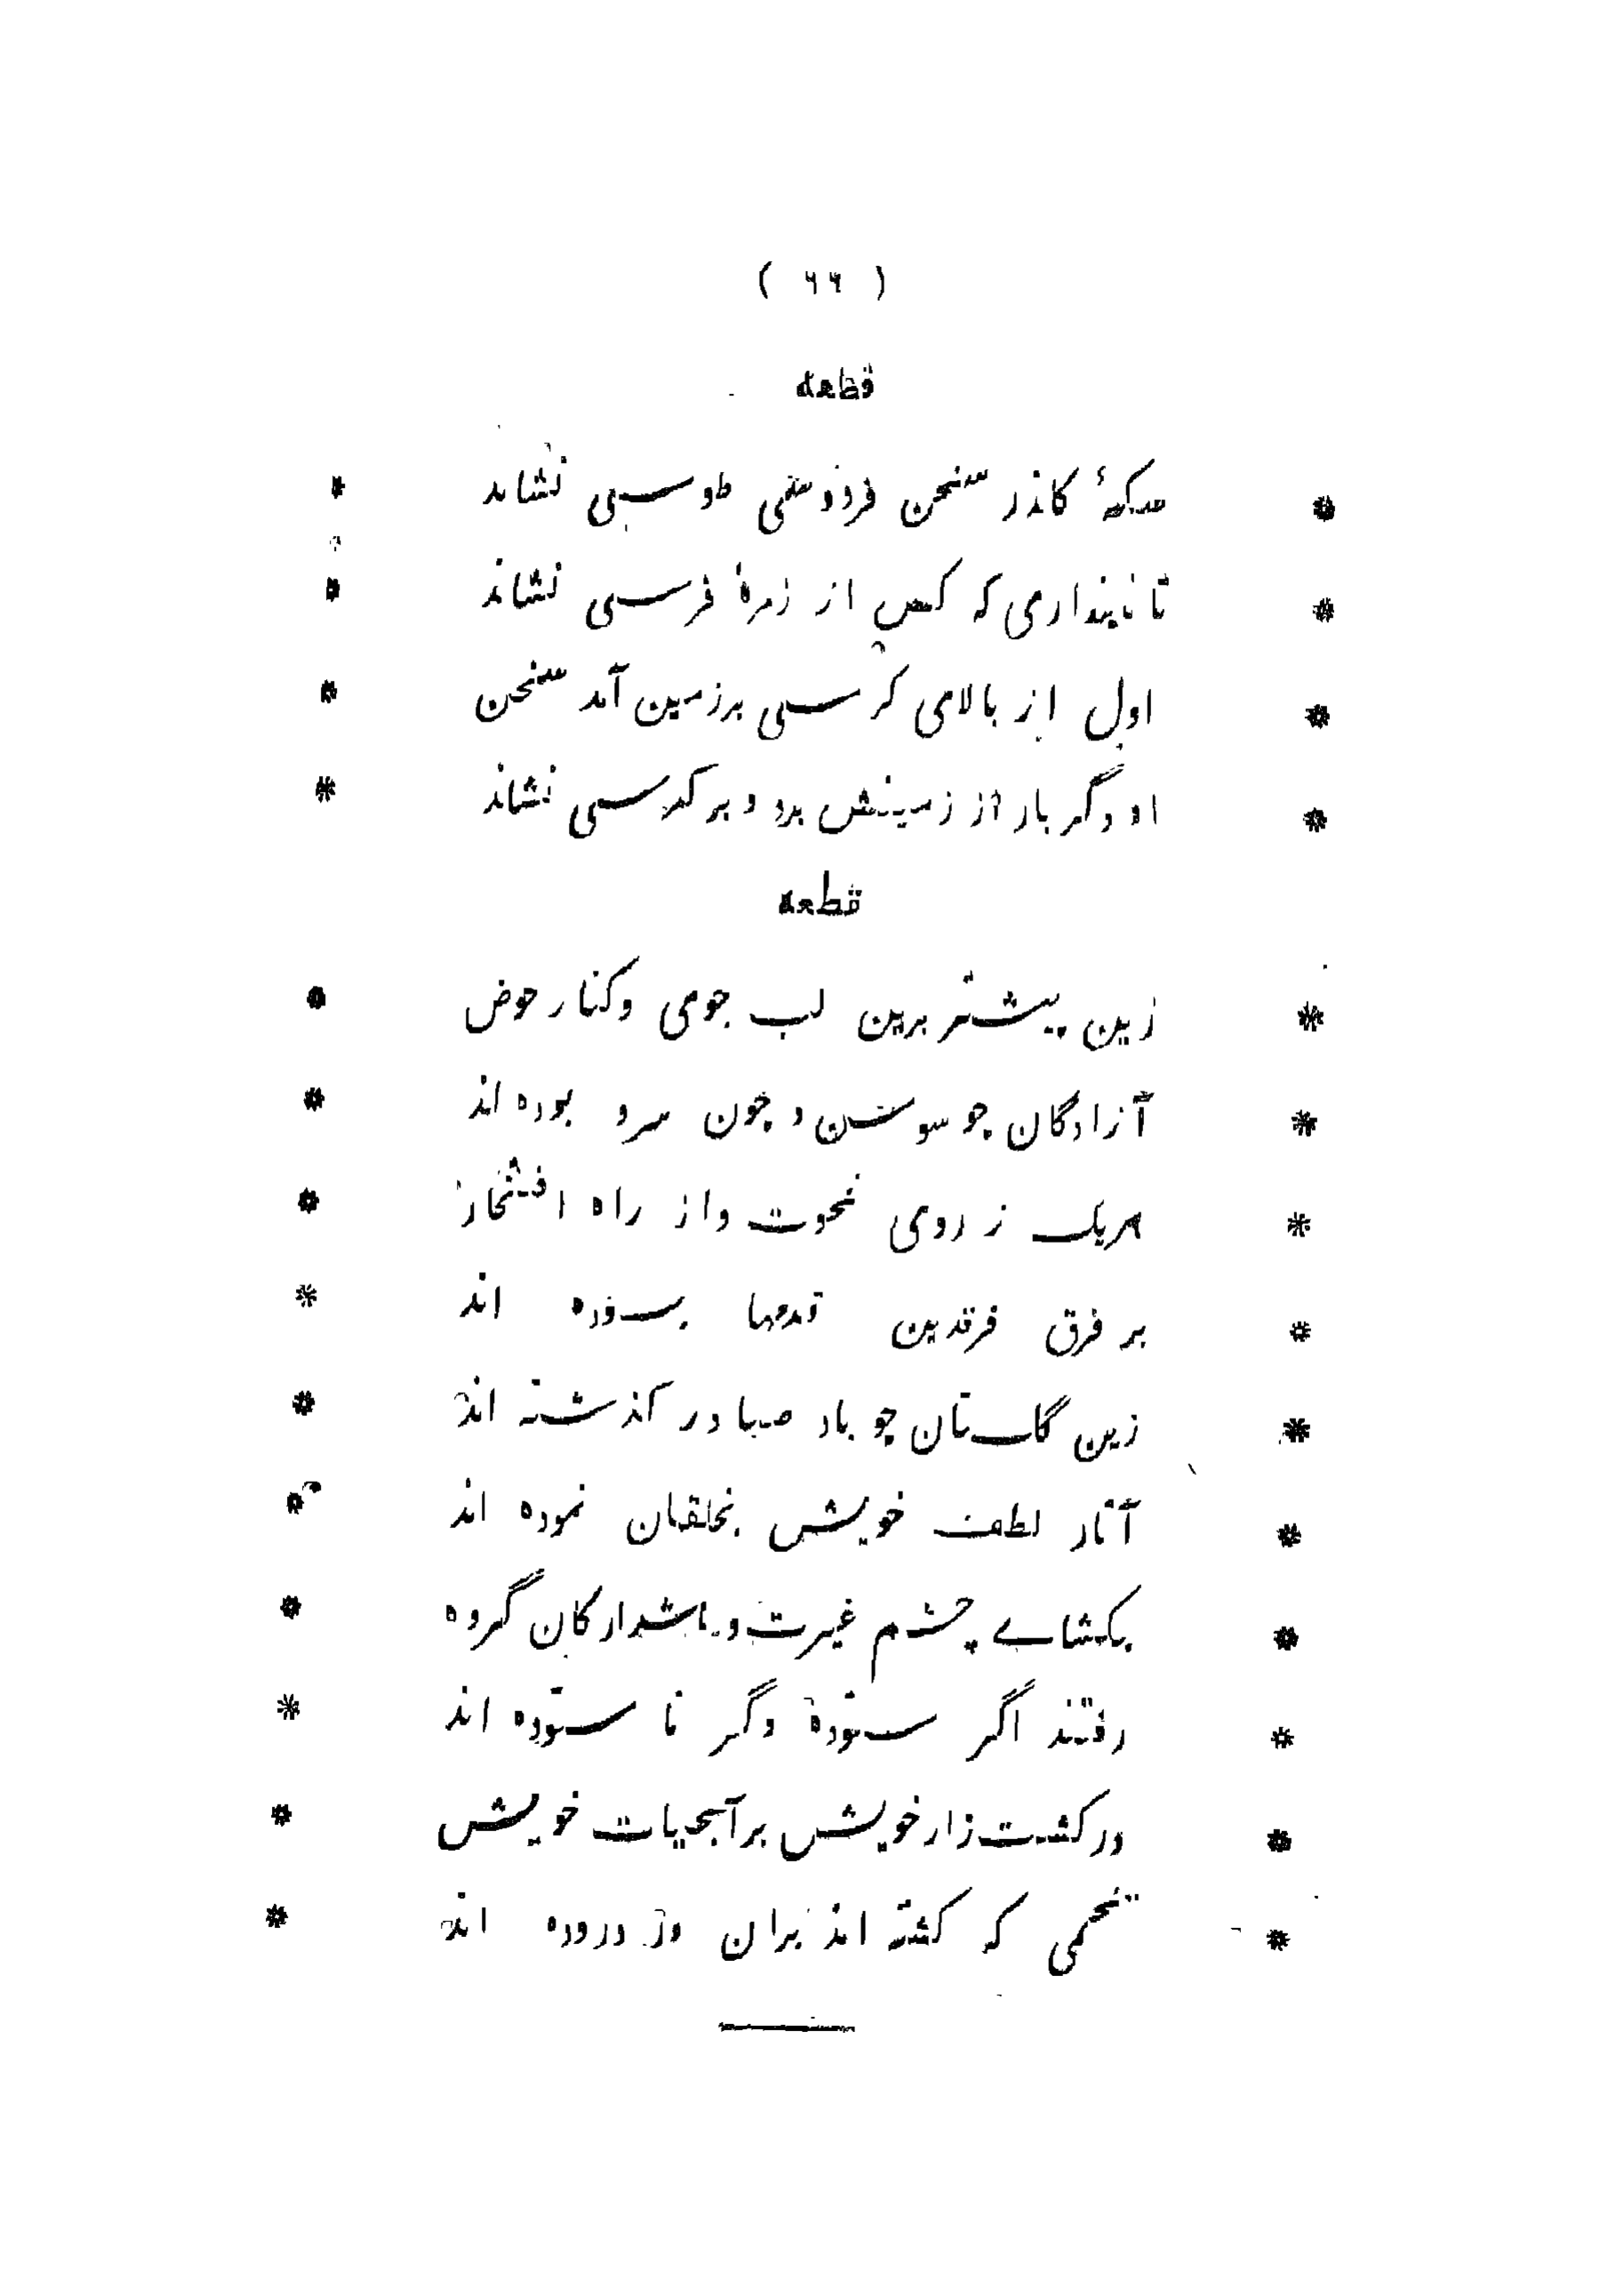 ( ٦٦ )
قطعه
* سکهٔ کاندر سخن فردوسی طوسی نشاند *
* تا نپنداری که کس از زمرهٔ فرسی نشاند *
* اول از بالای کرسی برزمین آمد سخن *
* او دگر بار از زمینش برد و بر کرسی نشاند *
قطعه
* زین پیشتر برین لب جوی و کنار حوض *
* آزادگان چو سوسن و چون سرو بوده اند *
* هریک ز روی نخوت و از راه افتخار *
* بر فرق فرقدین قدمها بسوده اند *
* زین گلستان چو باد صبا در گذشته اند *
* آثار لطف خویش بخلقان نموده اند *
* بکشاے چشم غیرت و کان گروه *
* رفتند اگر ستوده وگر نا ستوده اند *
* در کشت زار خویش بر آبحیات خویش *
* تخمی که کشته اند بران در وده اند *